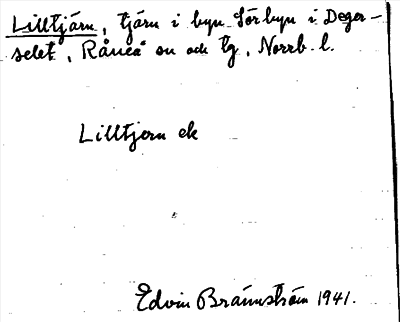 Lilltjärn, tjärn i byn Sörbyn i Deger-
selet, Råneå sn och tg, Norrb. l.
Lilltjern ek
Edvin Brännström 1941.